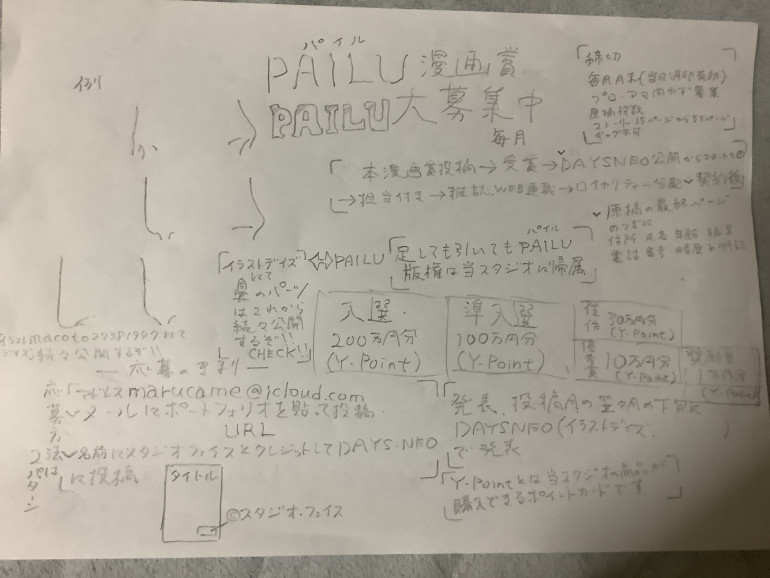 パイル
PAILU 漫画賞
PAILU 大募集中
毎月
例
締切
毎月月末(当日消印有効)
プロ・アマ問わず募集
原稿枚数
ストーリー 15ページから55ページ
本漫画賞投稿→受賞→DAYSNEO公開から
→担当付き→雑誌、WEB連載→ロイヤリティー分配 契約後
原稿の最終ページ
のうらに
住所 氏名 年齢
電話番号 明記
「イラストデイズ」⇔PAILU
にて
のパーツ
はこれから
続々公開
するぞ!!
CHECK!!
パイル
足しても引いてもPAILU
版権は当スタジオに帰属
入選
200万円分
(Y-Point)
準入選
100万円分
(Y-Point)
30万円分
(Y-Point)
10万円分
(Y-Point)
1万円分
(Y-Point)
イラスト macoto27581989にて
続々公開するぞ!!
応募のきまり
応募方法は2パターン
アドレス marucame@icloud.com
メールにポートフォリオを貼って投稿
URL
名前にスタジオフェイスとクレジットしてDAYS・NEO
に投稿
タイトル
©スタジオ・フェイス
発表、投稿月の翌々月の下旬に
DAYSNEO(イラストデイズ )
で発表
Y-Pointとは当スタジオの商品が
購入できるポイントカードです